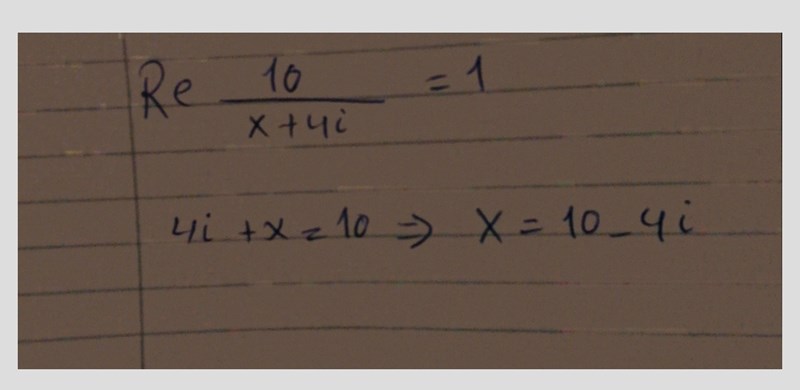 Re 10/(x+4i) = 1
4i + x = 10 ⇒ X = 10 - 4i